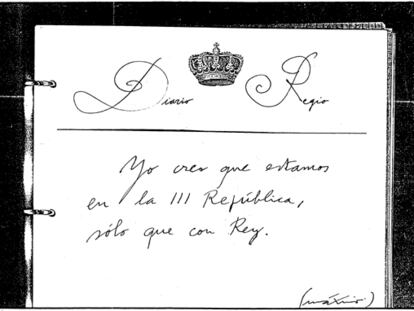 Diario Regio
Yo creo que estamos
en la III República,
sólo que con Rey.
(máximo)